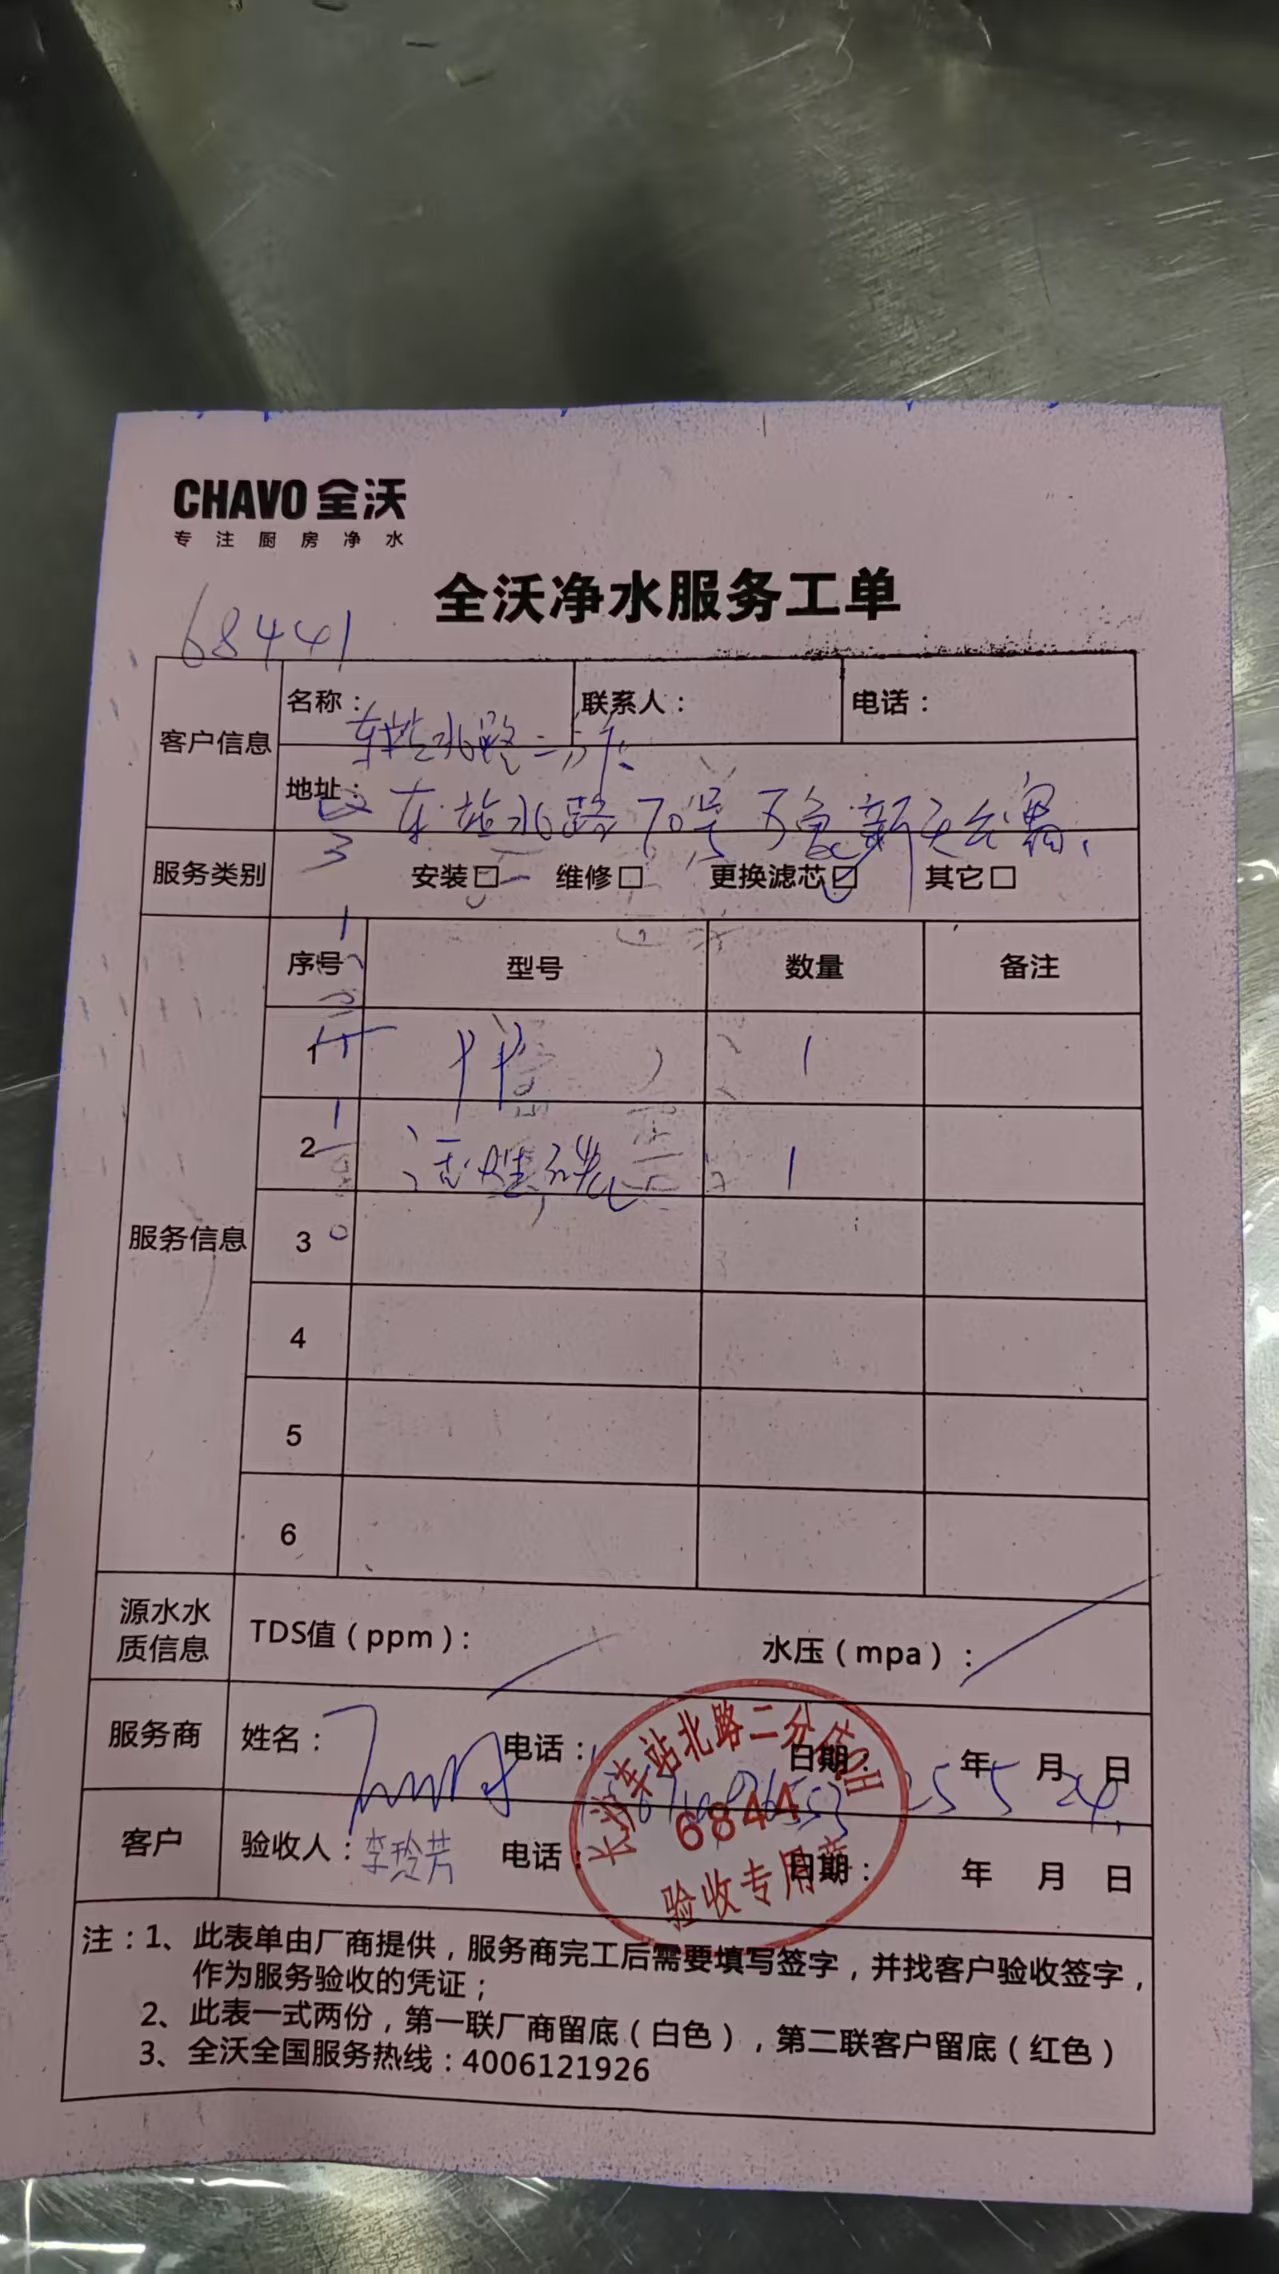 CHAVO 全沃
专注厨房净水
全沃净水服务工单
68441
客户信息 名称： 车站北路二分店 联系人： 电话：
地址： 车站北路70号万象新天公寓
服务类别 安装□ 维修□ 更换滤芯☑ 其它□
服务信息 序号 型号 数量 备注
1 PP 1
2 活性碳 1
3
4
5
6
源水水质信息 TDS值（ppm）： 水压（mpa）：
服务商 姓名： 电话： 日期： 25年 5月 24日
客户 验收人：李玲芳 电话： 日期： 年 月 日
长沙车站北路二分店
6844
验收专用章
注：1、此表单由厂商提供，服务商完工后需要填写签字，并找客户验收签字，
作为服务验收的凭证；
2、此表一式两份，第一联厂商留底（白色），第二联客户留底（红色）
3、全沃全国服务热线：4006121926